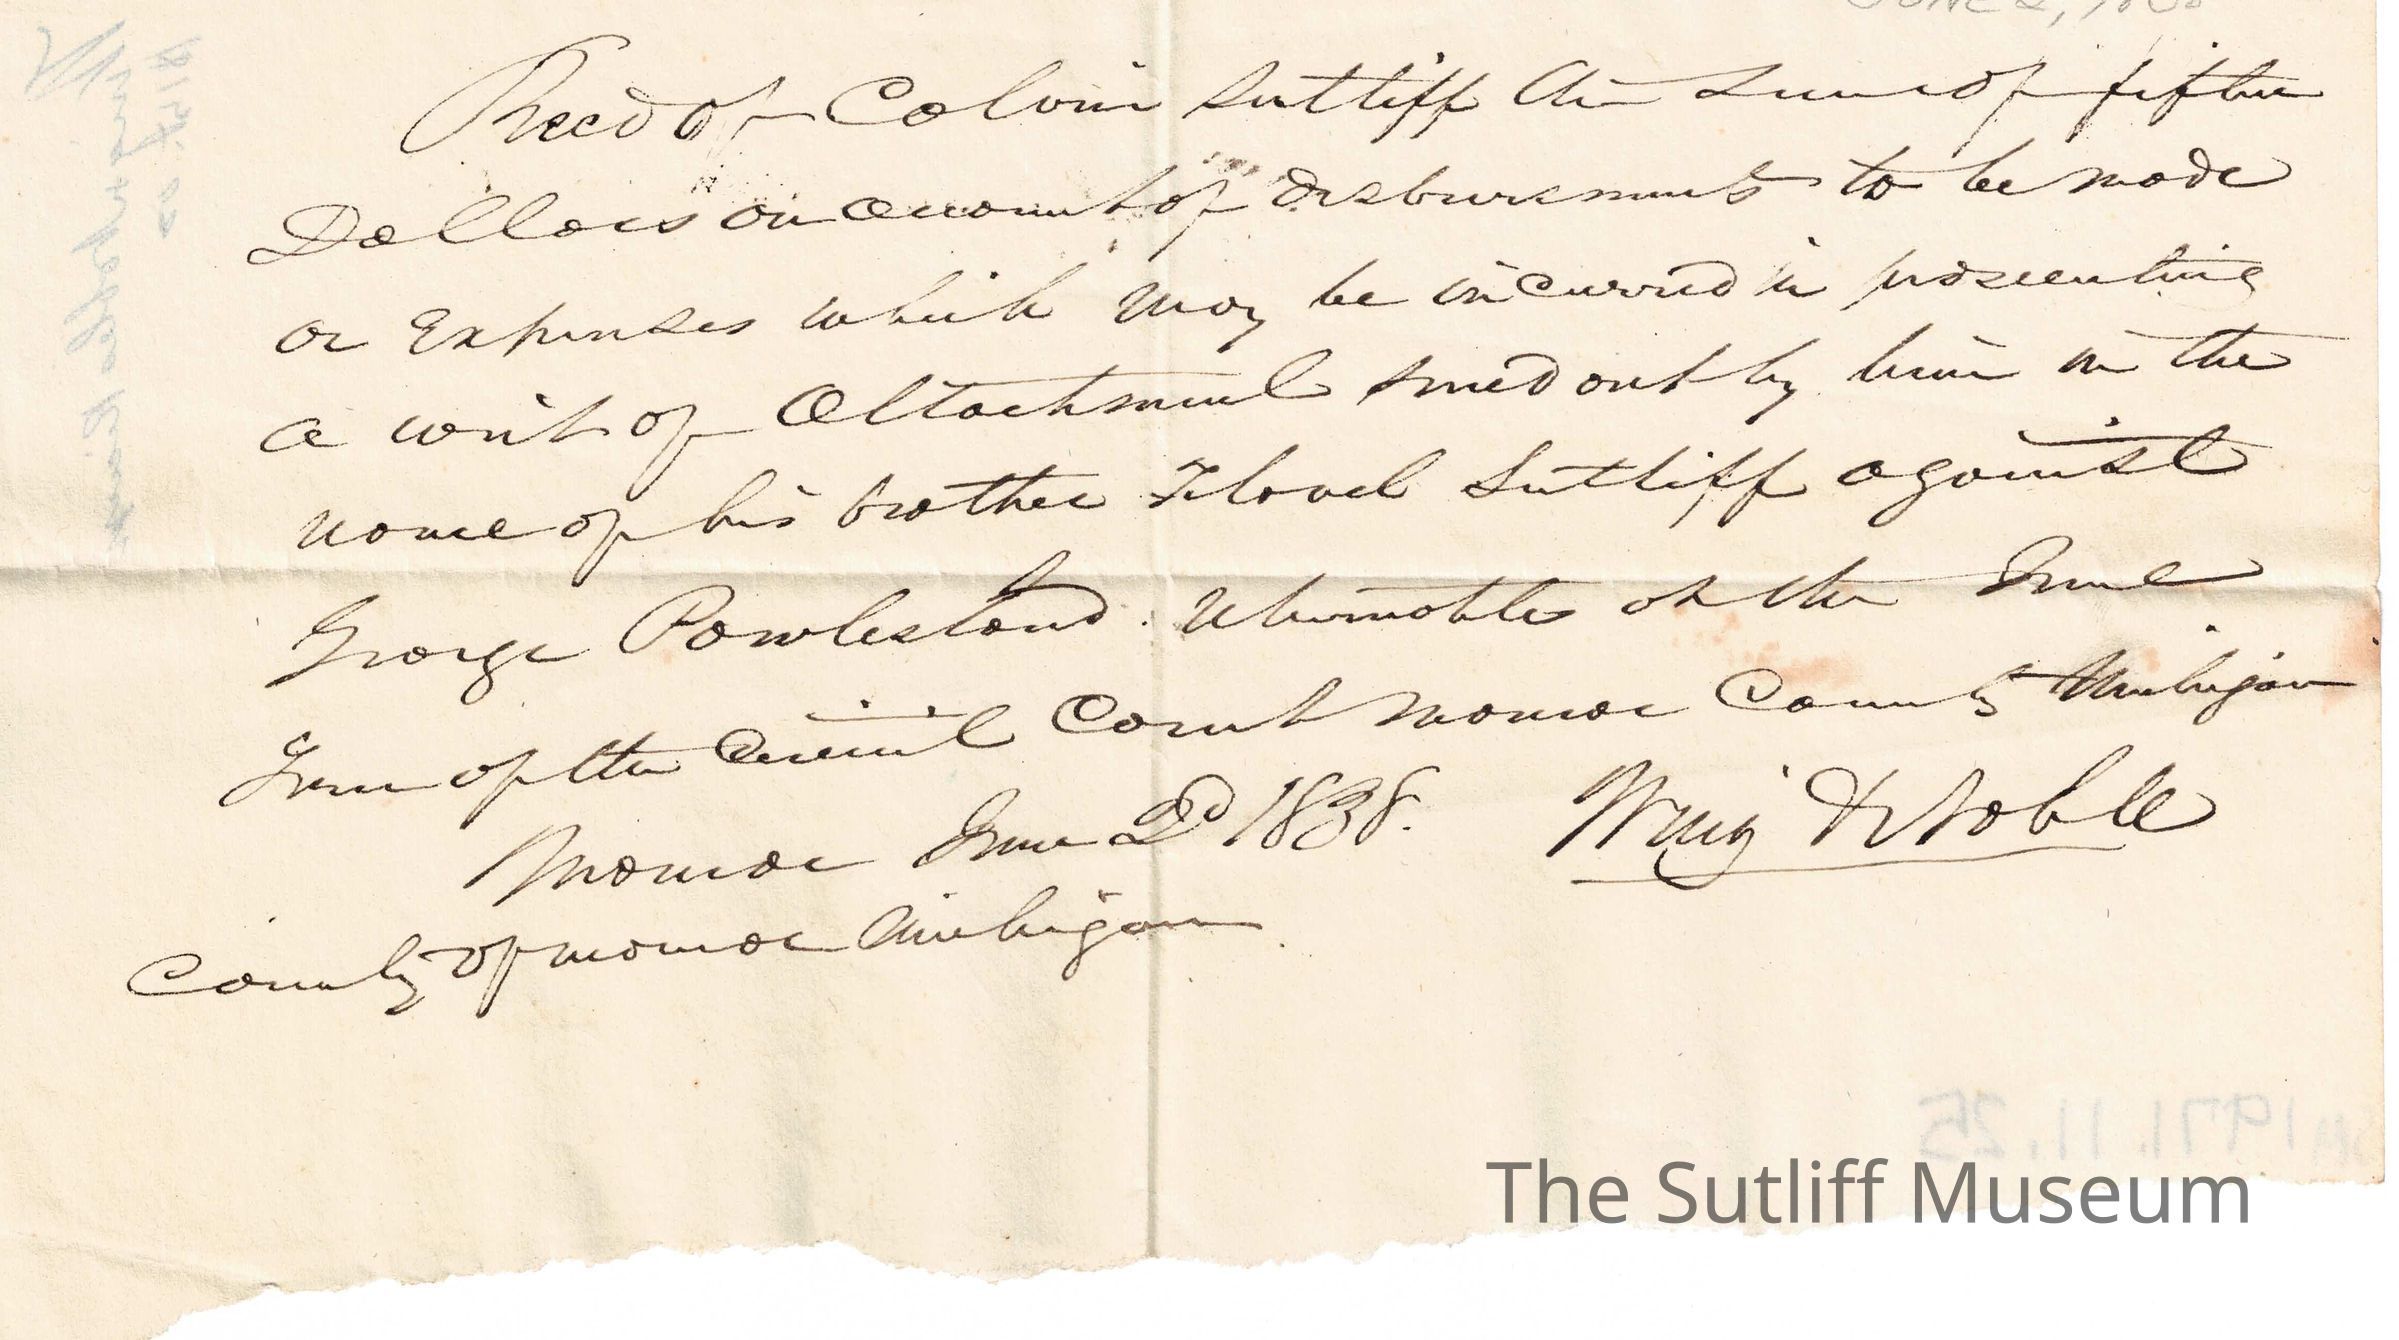 JUNE 2, 18
Recd of Calvin Sutliff the sum of fifteen
Dollars on account of disbursments to be made
or Expenses which may be incurred in prosecuting
a writ of Attachment sued out by him in the
name of his brother Flavel Sutliff against
George Powlesland. returnable at the June
Term of the Circuit Court Monroe County Michigan
Monroe June 2d 1838. Noble
County of monroe Michigan
1971.11.25
The Sutliff Museum